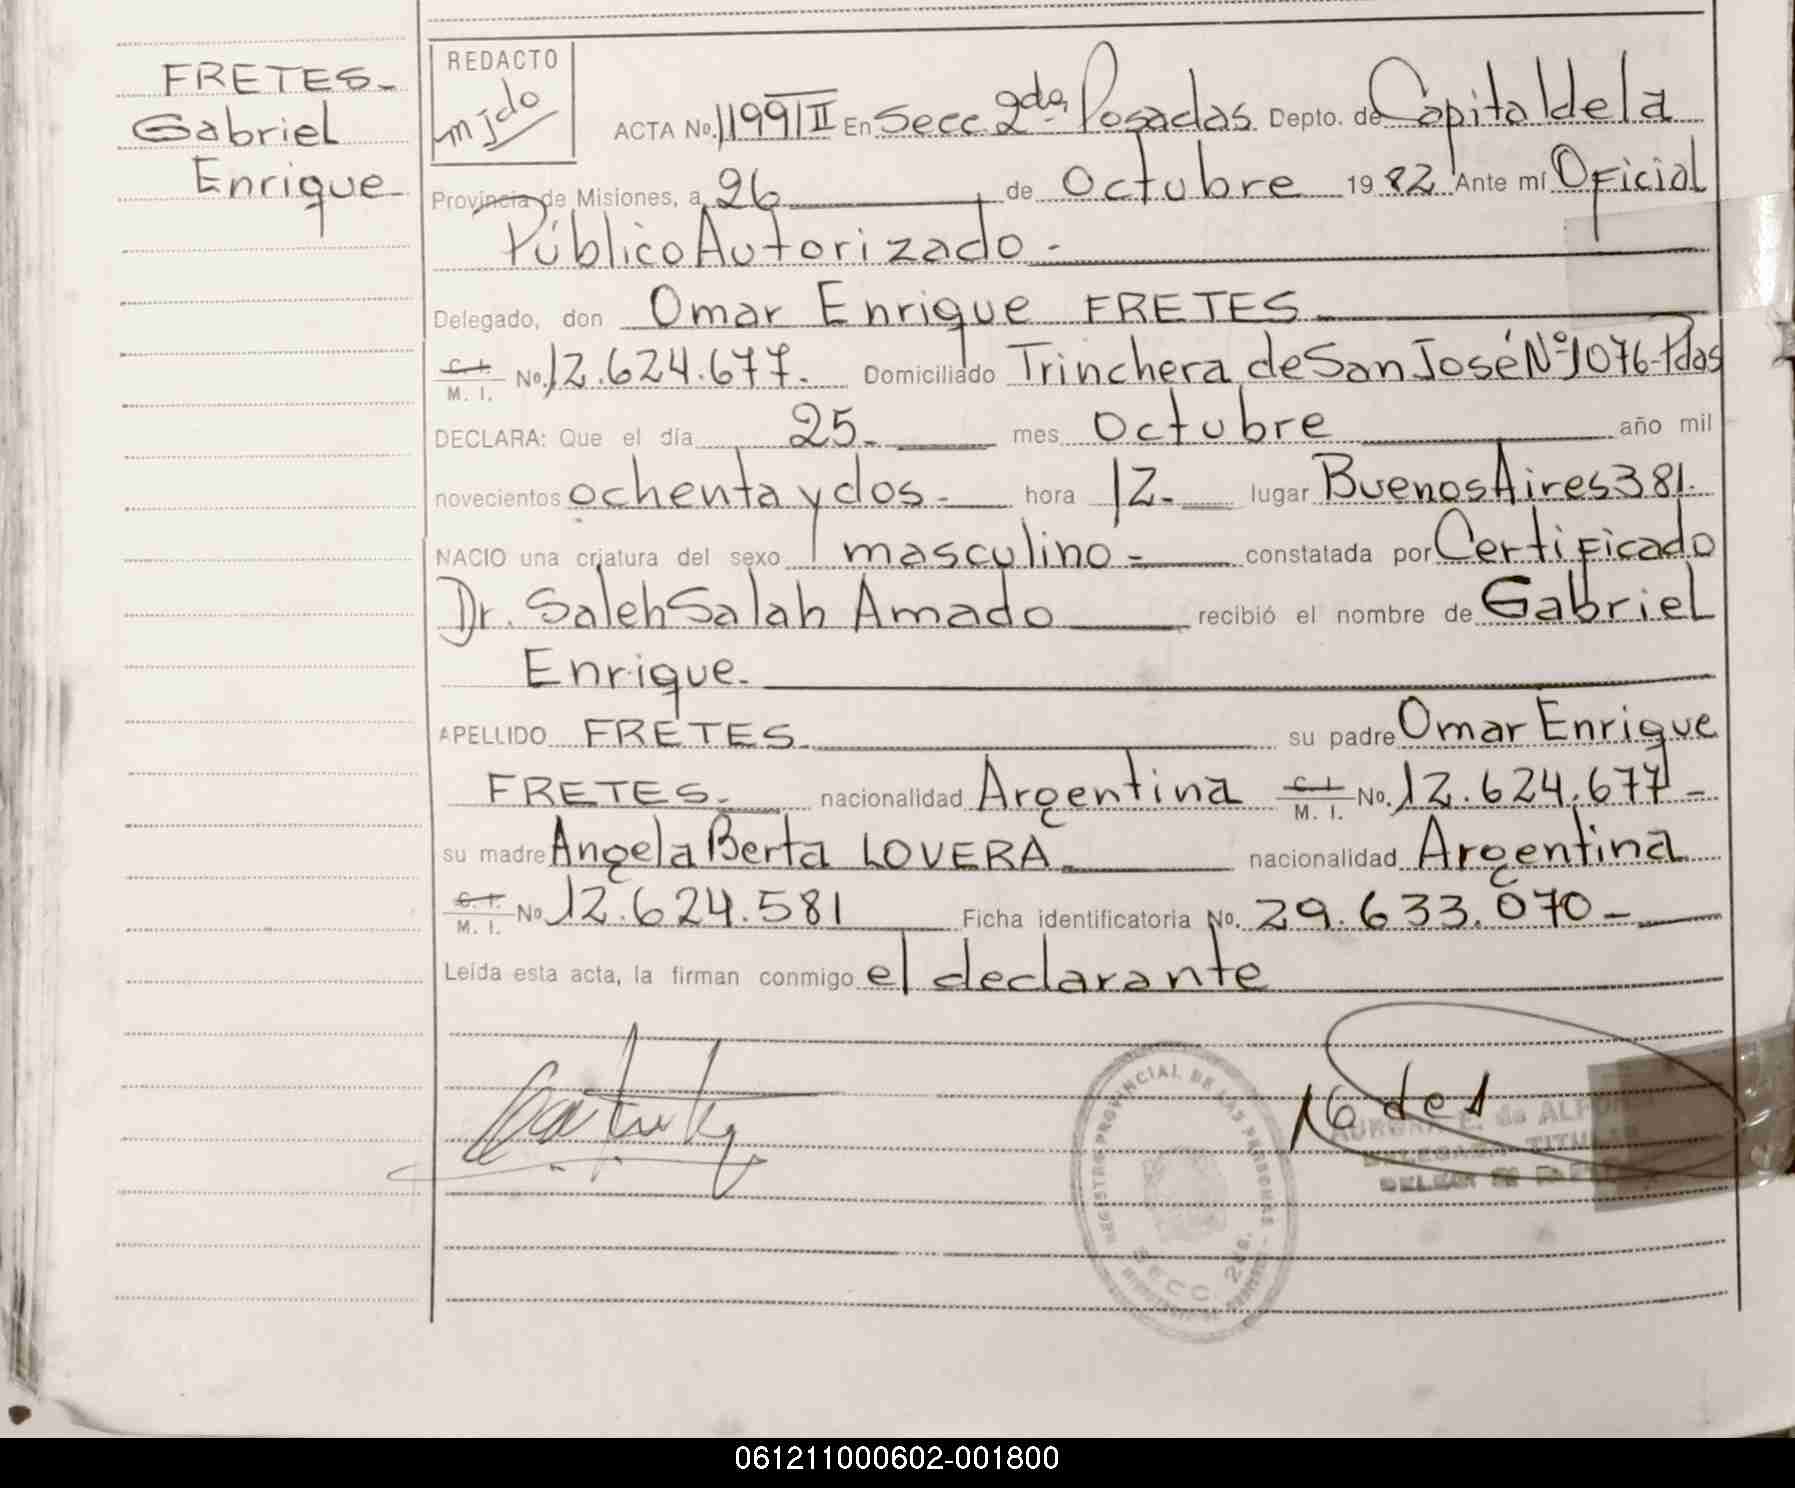 FRETES-
Gabriel
Enrique
REDACTO
ACTA No. 1199/II En Secc. 2da. Posadas Depto. de Capital de la
Provincia de Misiones, a 26 de Octubre 1982 Ante mí Oficial
Público Autorizado.-
Delegado, don Omar Enrique FRETES
C. I.
M. I. No. 12.624.677. Domiciliado Trinchera de San José Nº 1076-Pdas
DECLARA: Que el día 25.- mes Octubre año mil
novecientos ochenta y dos.- hora 12.- lugar Buenos Aires 381.
NACIO una criatura del sexo masculino.- constatada por Certificado
Dr. Saleh Salah Amado recibió el nombre de Gabriel
Enrique.-
APELLIDO FRETES. su padre Omar Enrique
FRETES.- nacionalidad Argentina C. I.
M. I. No. 12.624.677-
su madre Angela Berta LOVERA.- nacionalidad Argentina
C. I.
M. I. No. 12.624.581 Ficha identificatoria No. 29.633.070-
Leída esta acta, la firman conmigo el declarante
REGISTRO PROVINCIAL DE LAS PERSONAS
SECC. 2da.
AURORA E. de
DELEGADA TITULAR
061211000602-001800